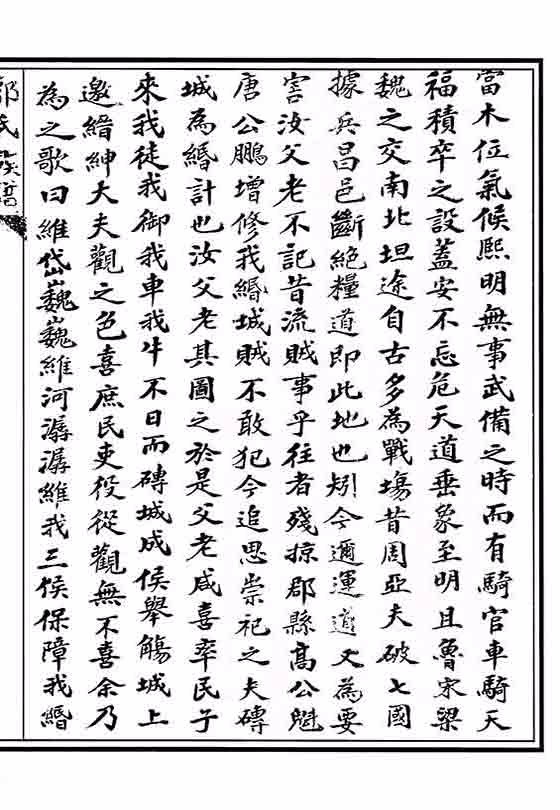 當木位氣候熙明無事武備之時而有騎官車騎天
福積卒之設蓋安不忘危天道垂象至明且魯宋梁
魏之交南北坦途自古多為戰塲昔周亞夫破七國
據兵昌邑斷絕糧道即此地也矧今邇運道又為要
害汝父老不記昔流賊事乎往者殘掠郡縣髙公魁
唐公鵬增修我緡城賊不敢犯今追思崇祀之夫磚
城為緡計也汝父老其圖之於是父老咸喜率民子
來我徒我御我車我牛不日而磚城成侯舉觴城上
邀縉紳大夫觀之色喜庶民吏役從觀無不喜余乃
為之歌曰維岱巍巍維河潺潺維我三侯保障我緡
郭氏族譜